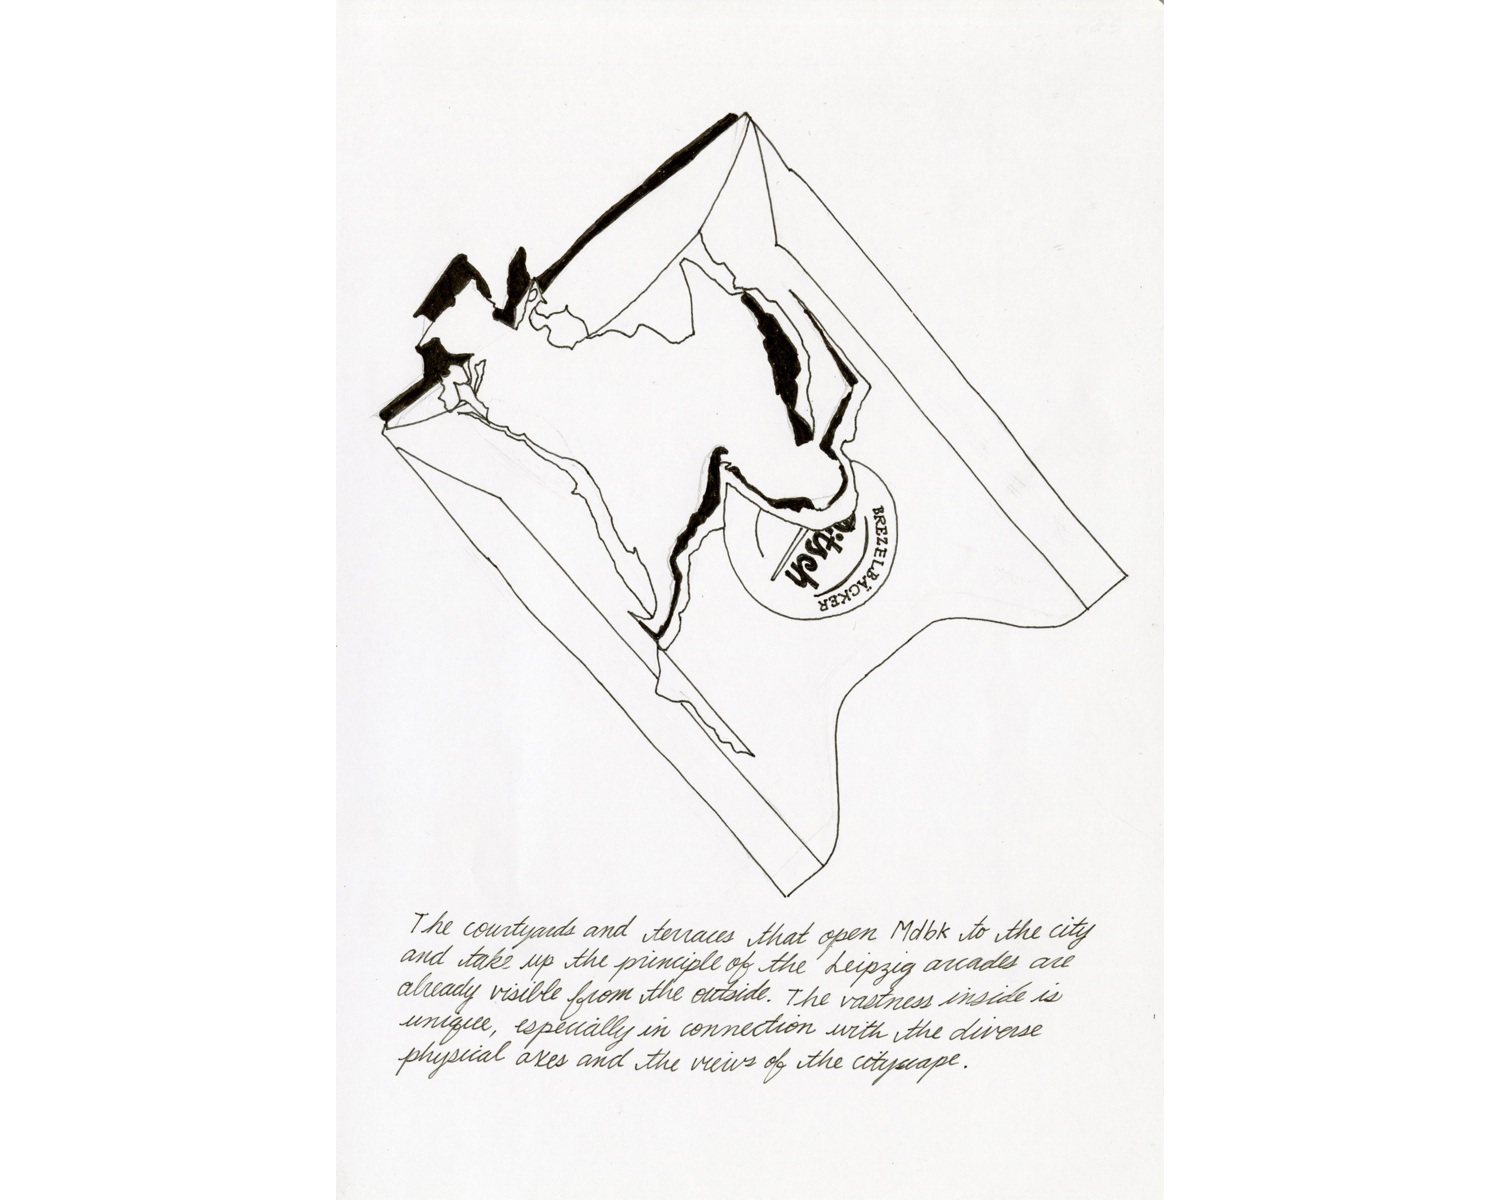 BREZELBÄCKER
itsch
The courtyards and terraces that open Mdbk to the city
and take up the principle of the Leipzig arcades are
already visible from the outside. The vastness inside is
unique, especially in connection with the diverse
physical axes and the views of the cityscape.